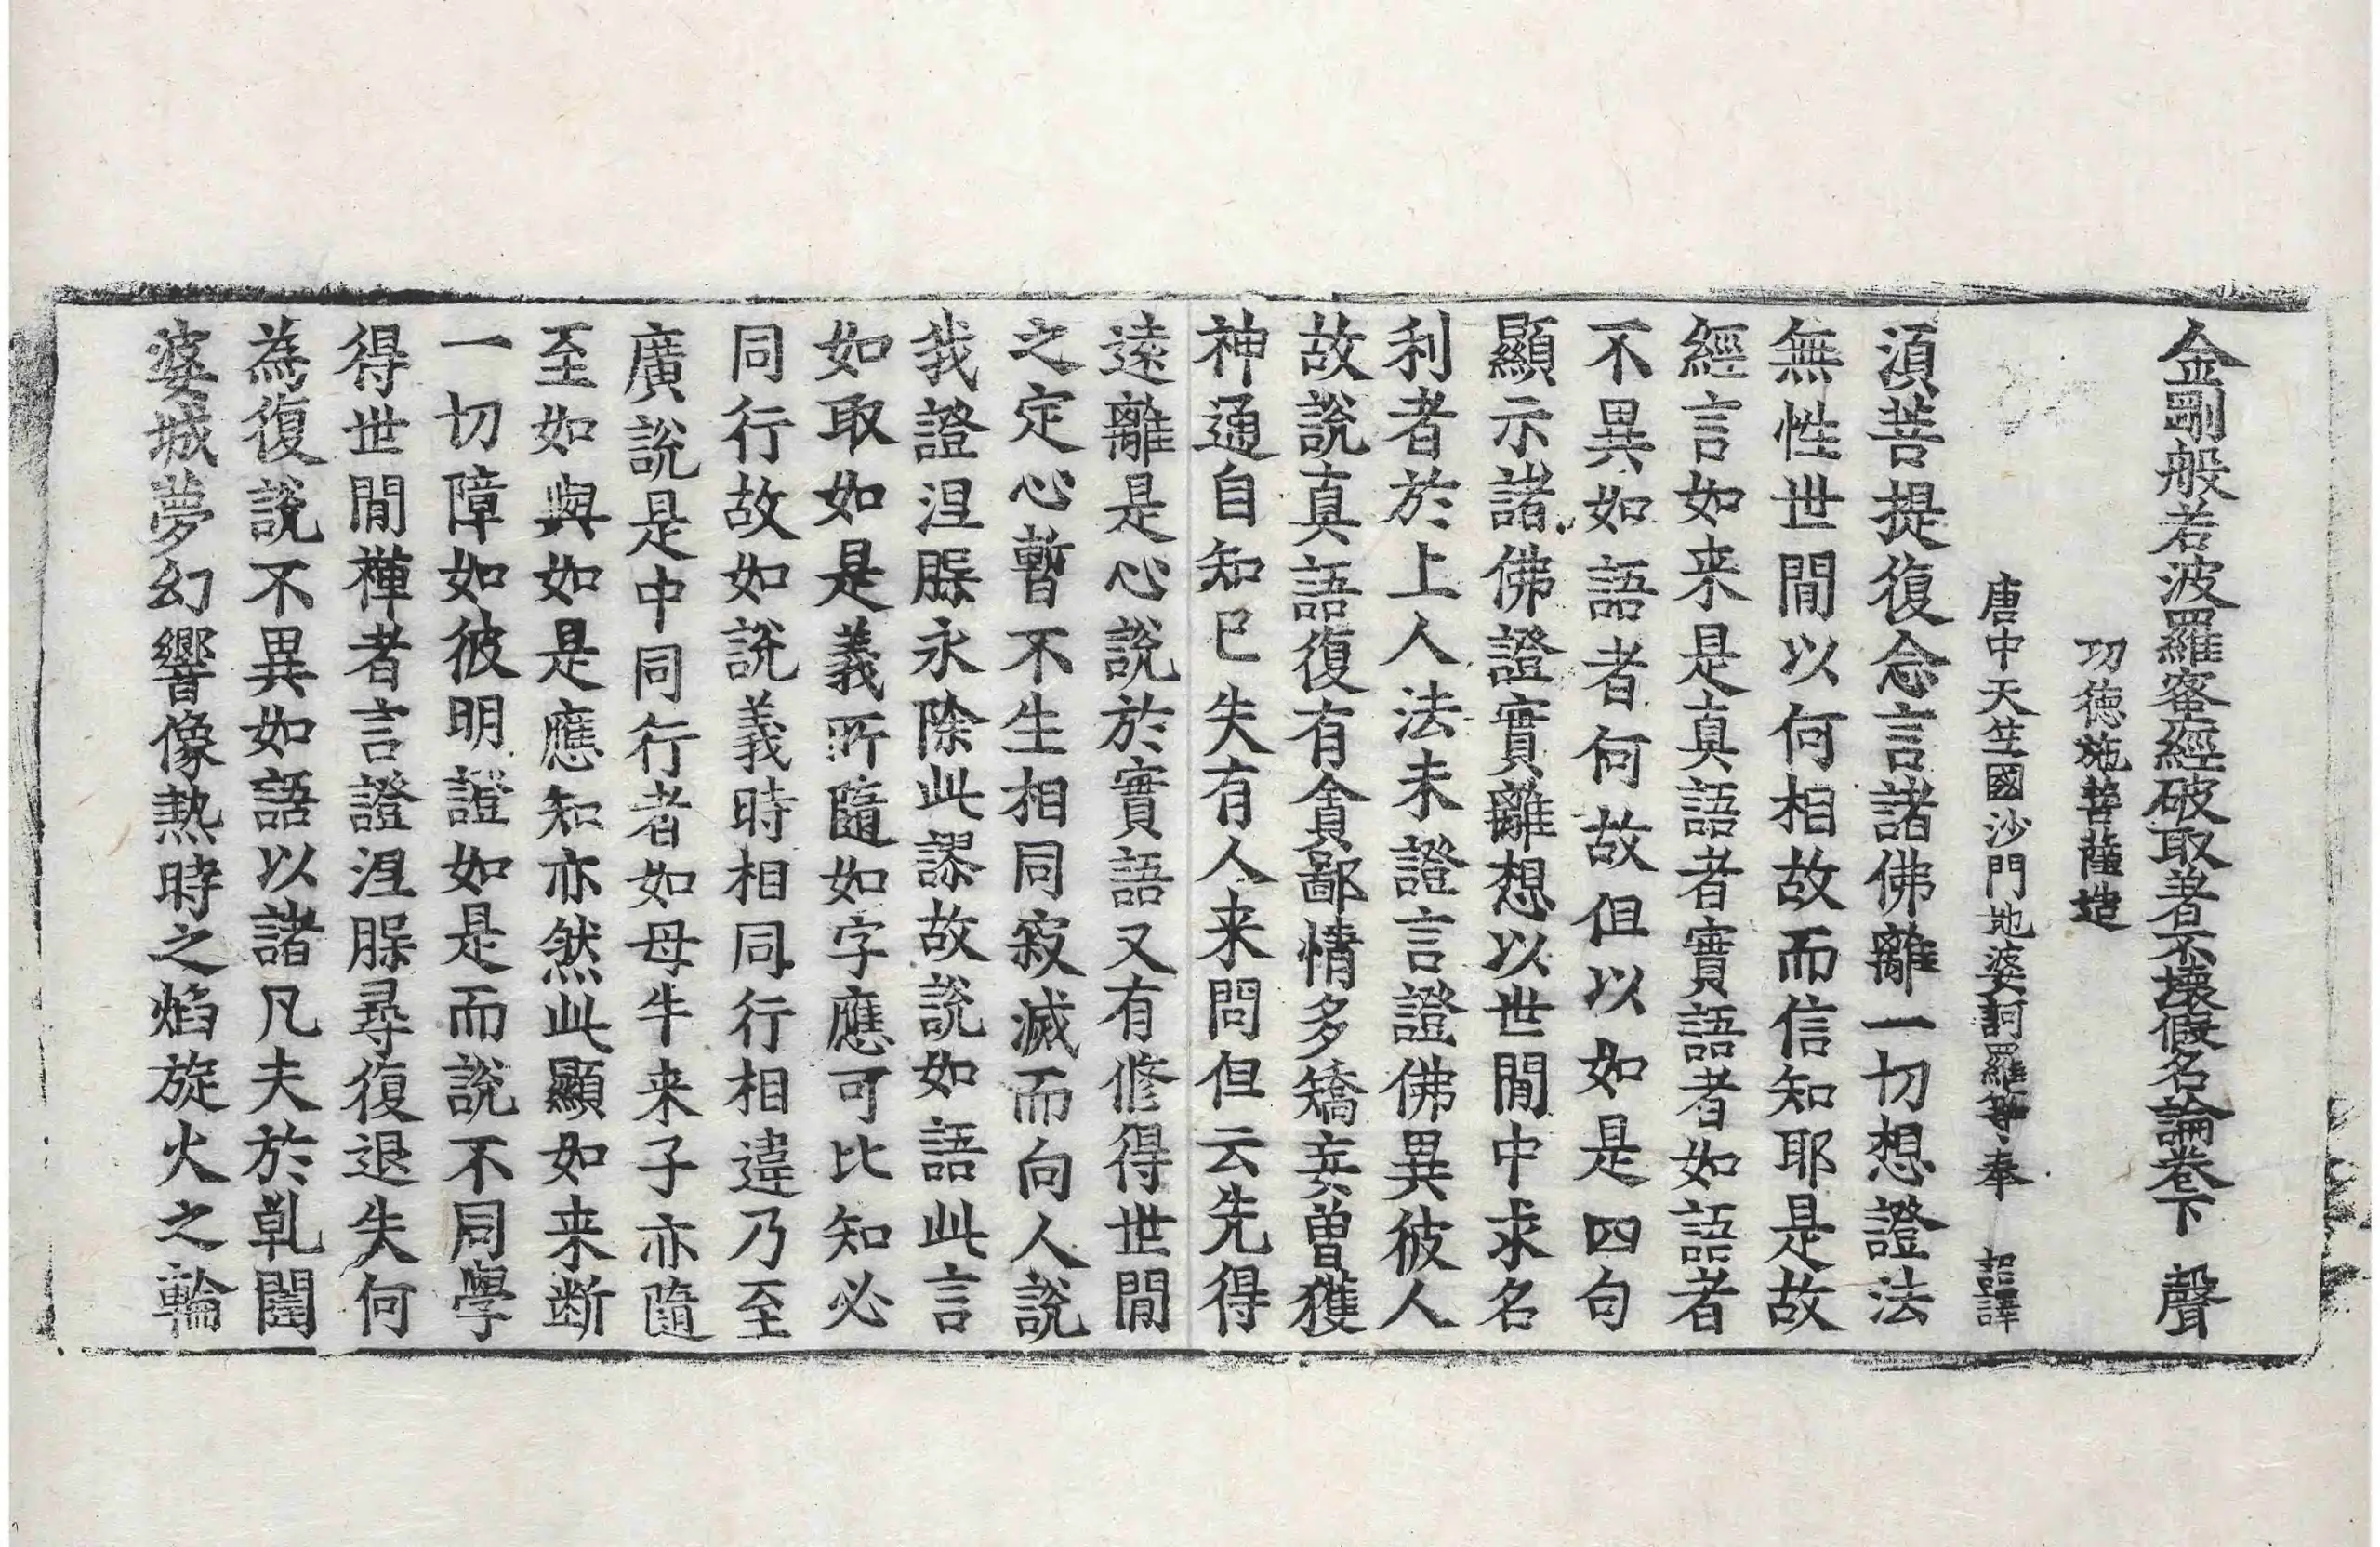 金剛般若波羅蜜經破取著不壞假名論卷下　聲
功德施菩薩造
唐中天竺國沙門地婆訶羅等奉　詔譯
須菩提復念言諸佛離一切想證法
無性世閒以何相故而信知耶是故
經言如来是真語者實語者如語者
不異如語者何故但以如是四句
顯示諸佛證實離想以世閒中求名
利者於上人法未證言證佛異彼人
故說真語復有貪鄙情多矯妄曽獲
神通自知已失有人来問但云先得
遠離是心說於實語又有修得世閒
之定心暫不生相同寂滅而向人說
我證涅脲永除此謬故說如語此言
如取如是義所隨如字應可比知必
同行故如說義時相同行相違乃至
廣說是中同行者如母牛来子亦隨
至如與如是應知亦然此顯如来断
一切障如彼明證如是而說不同學
得世閒禪者言證涅脲尋復退失何
為復說不異如語以諸凡夫於乹闥
婆城夢幻響像熱時之焰旋火之輪